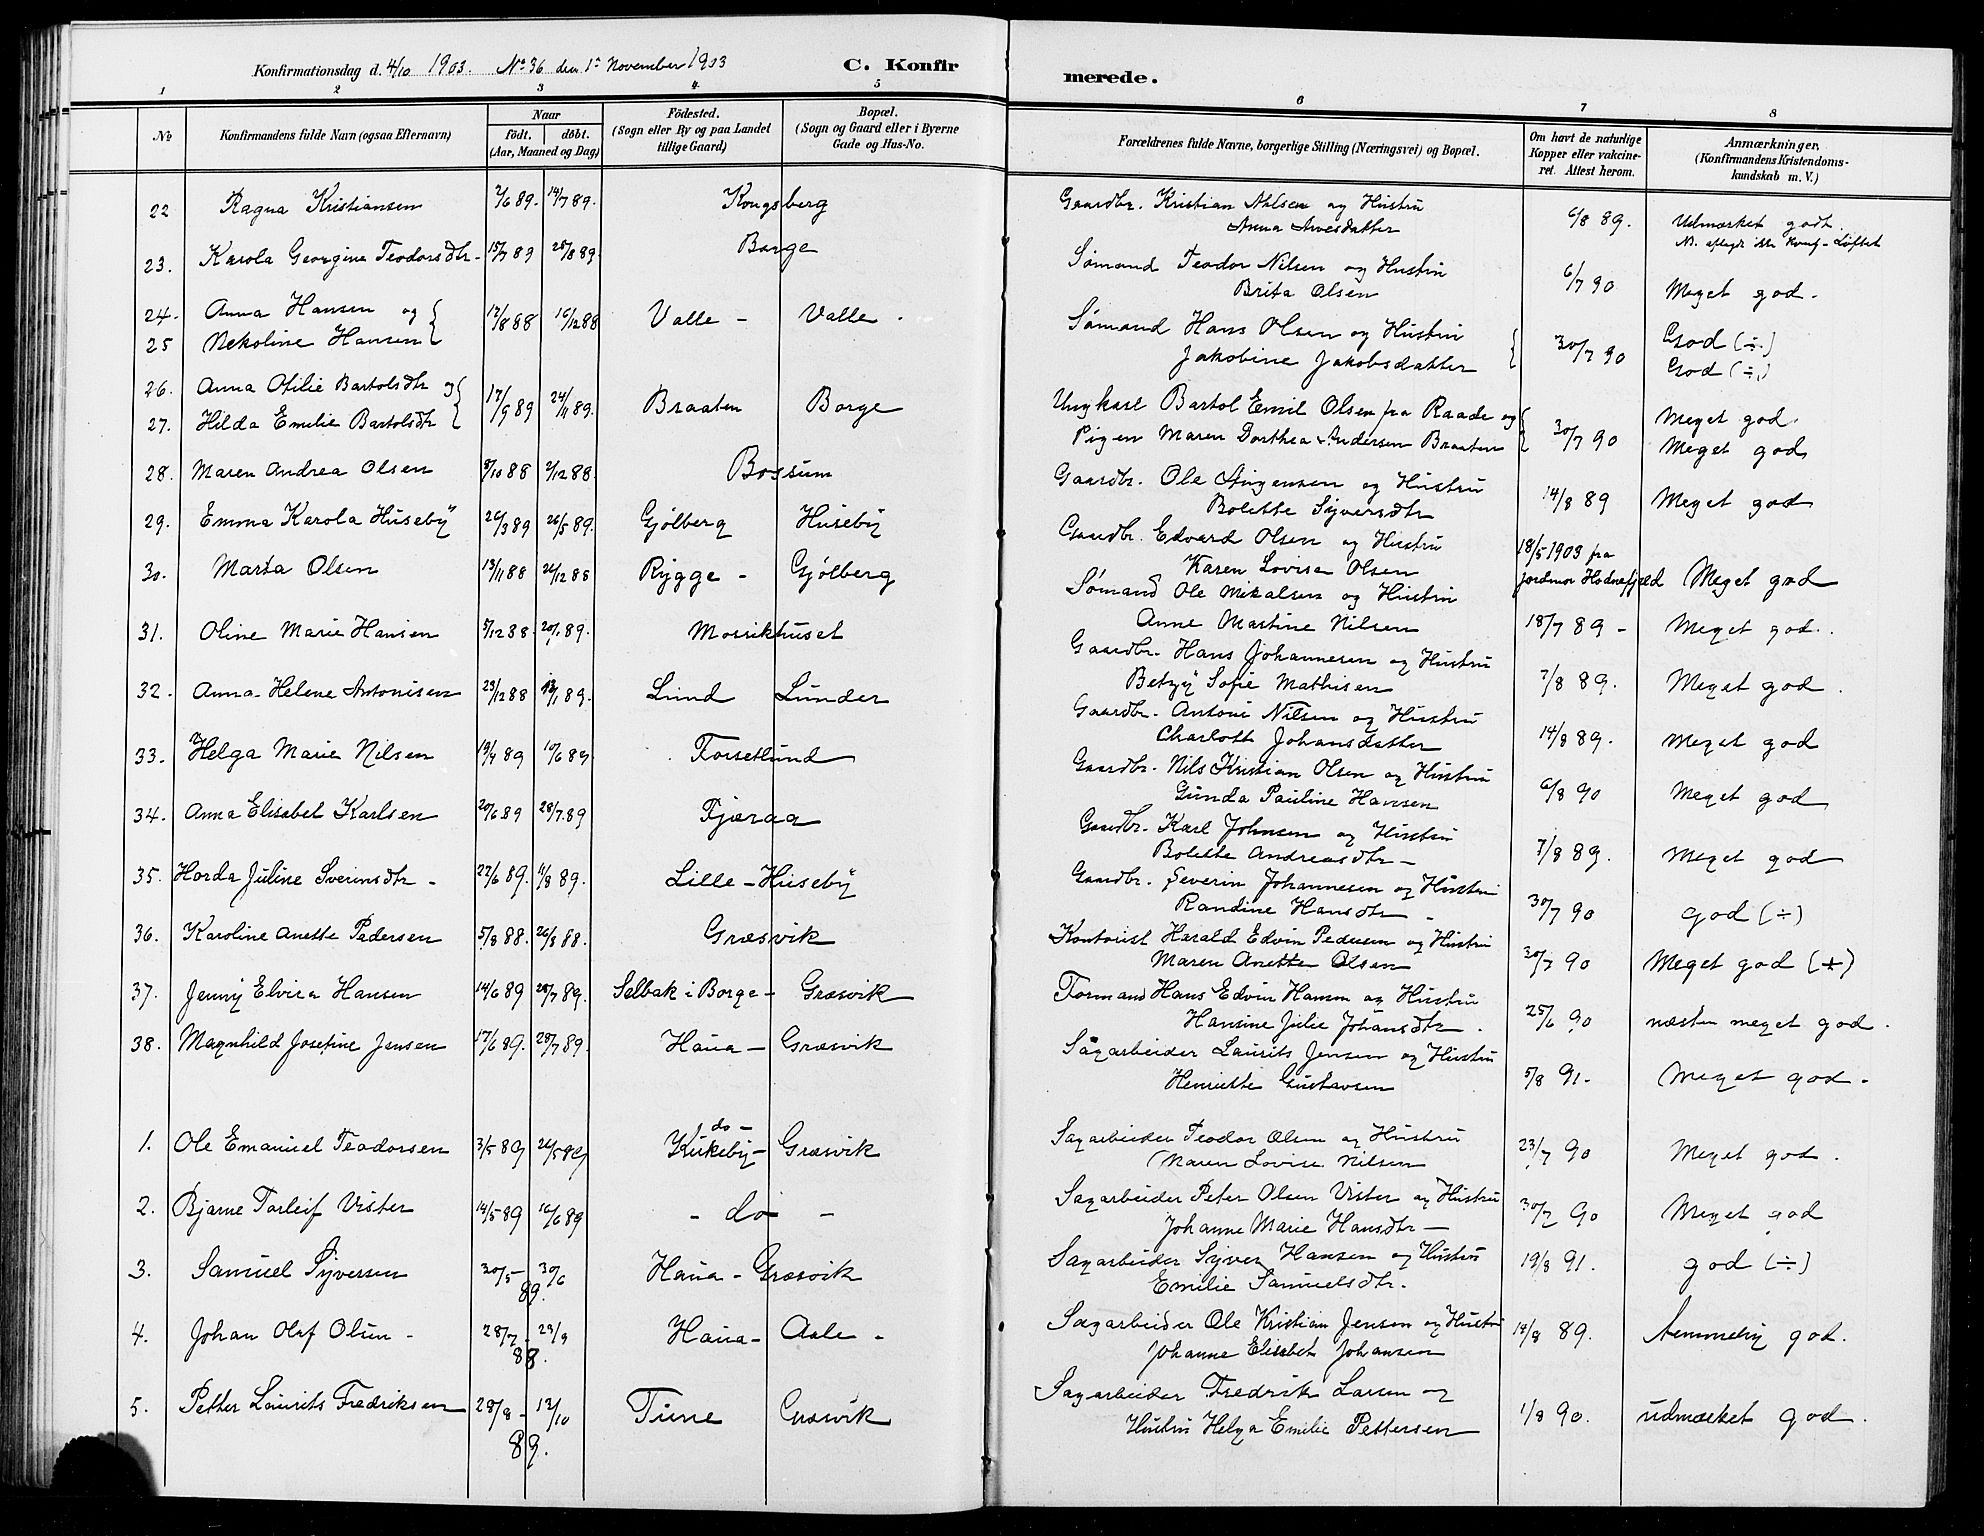 Konfirmationsdag d. 4/10 1903. No 36 den 1ste November 1903 C. Konfirmerede.
1 2 3 4 5 6 7 8
No
Konfirmandens fulde Navn (ogsaa Efternavn)
Naar
födt. döbt.
(Aar, Maaned og Dag)
Födested.
(Sogn eller By og paa Landet
tillige Gaard)
Bopæl.
(Sogn og Gaard eller i Byerne
Gade og Hus-No.
Forældrenes fulde Navne, borgerlige Stilling (Næringsvei) og Bopæl.
Om havt de naturlige
Kopper eller vakcine-
ret. Attest herom.
Anmærkninger.
(Konfirmandens Kristendoms-
kundskab m. V.)
22 Ragna Kristiansen 2/6 89. 14/7 89. Kongsberg Gaardbr. Kristian Ahlsen og Hustru
Anna Arnesdatter 6/8 89. Udmærket godt.
NB. aflagt ikke Konf-Løftet
23. Karola Georgine Teodorsdtr 15/7 89 25/8 89. Borge Sømand Teodor Nilsen og Hustru
Brita Olsen 6/7 90 Meget god.
24. Anna Hansen og 12/8 88 16/12 88 Valle - Valle. Sømand Hans Olsen og Hustru God (÷)
25 Nekoline Hansen Jakobine Jakobsdatter 30/7 90 God (÷)
26. Anna Otilie Bartolsdtr og 17/9 89 24/11 89. Braaten Borge Ungkarl Bartol Emil Olsen fra Raade og Meget god.
27. Hilda Emilie Bartolsdtr Pigen Maren Dorthea Andersen Braaten 30/7 90 Meget god
28. Maren Andrea Olsen 8/10 88 2/12 88. Bossum Gaardbr. Ole Jørgensen og Hustru
Bolette Syversdtr 14/8 89 Meget god
29. Emma Karola Huseby 26/3 89 26/5 89. Gjölberg Huseby Gaardbr. Edvard Olsen og Hustru
Karen Lovise Olsen 18/5 1903 fra
Jordmor Hodnefjeld Meget god
30. Marta Olsen 13/11 88 26/12 88 Rygge - Gjölberg Sømand Ole Mikalsen og Hustru
Anne Martine Nilsen 18/7 89 - Meget god.
31. Oline Marie Hansen 5/12 88 20/1 89. Mossikhuset Gaardbr. Hans Johannesen og Hustru
Betzy Sofie Mathisen 7/8 89. Meget god.
32. Anna Helene Antonisen 23/12 88 13/1 89. Lund Lunder Gaardbr. Antoni Nilsen og Hustru
Charlott Johansdatter 14/8 89. Meget god
33. Helga Marie Nilsen 19/4 89 10/6 89 Forsetlund Gaardbr. Nils Kristian Olsen og Hustru
Gunda Pauline Hansen 6/8 90 Meget god
34. Anna Elisabet Karlsen 20/6 89 28/7 89 Fjæraa Gaardbr. Karl Johnsen og Hustru
Bolette Andreasdtr - 7/8 89. Meget god
35. Horda Juline Sverinsdtr - 22/6 89. 11/8 89. Lille-Huseby Gaardbr. Severin Johannesen og Hustru
Randine Hansdtr - 30/7 90 god (÷)
36. Karoline Anette Pedersen 5/8 88. 26/8 88. Græsvik Kontorist Harald Edvin Pedersen og Hustru
Maren Anette Olsen 30/7 90 Meget god (+)
37. Jenny Elvira Hansen 14/6 89 28/7 89. Selbak i Borge - Græsvik Formand Hans Edvin Hansen og Hustru
Hansine Julie Johansdtr. 25/6 90 næsten meget god.
38. Magnhild Josefine Jensen 17/6 89. 28/7 89. Haua - Græsvik Sagarbeider Laurits Jensen og Hustru
Henriette Gustavsen 5/8 91. Meget god.
1. Ole Emanuel Teodorsen 3/5 89 26/5 89 do - Kirkeby - Græsvik Sagarbeider Teodor Olsen og Hustru
Maren Lovise Nilsen 23/7 90 Meget god.
2. Bjarne Torleif Vister 14/5 89 16/6 89 - do - Sagarbeider Peter Olsen Vister og Hustru
Johanne Marie Hansdtr - 30/7 90 Meget god
3. Samuel Syversen 30/5 - 30/6 89. Haua - Græsvik Sagarbeider Syver Hansen og Hustru
Emilie Samuelsdtr. 19/8 91. god (÷)
4. Johan Olaf Olsen - 28/7 - 23/9 88. Haua - Aale - Sagarbeider Ole Kristian Jensen og Hustru
Johanne Elisabet Johansen 14/8 89. temmelig god.
5. Petter Laurits Fredriksen 28/8 - 13/10 89. Tune Græsvik Sagarbeider Fredrik Larsen og
Hustru Helga Emilie Pettersen 1/8 90. udmærket god.